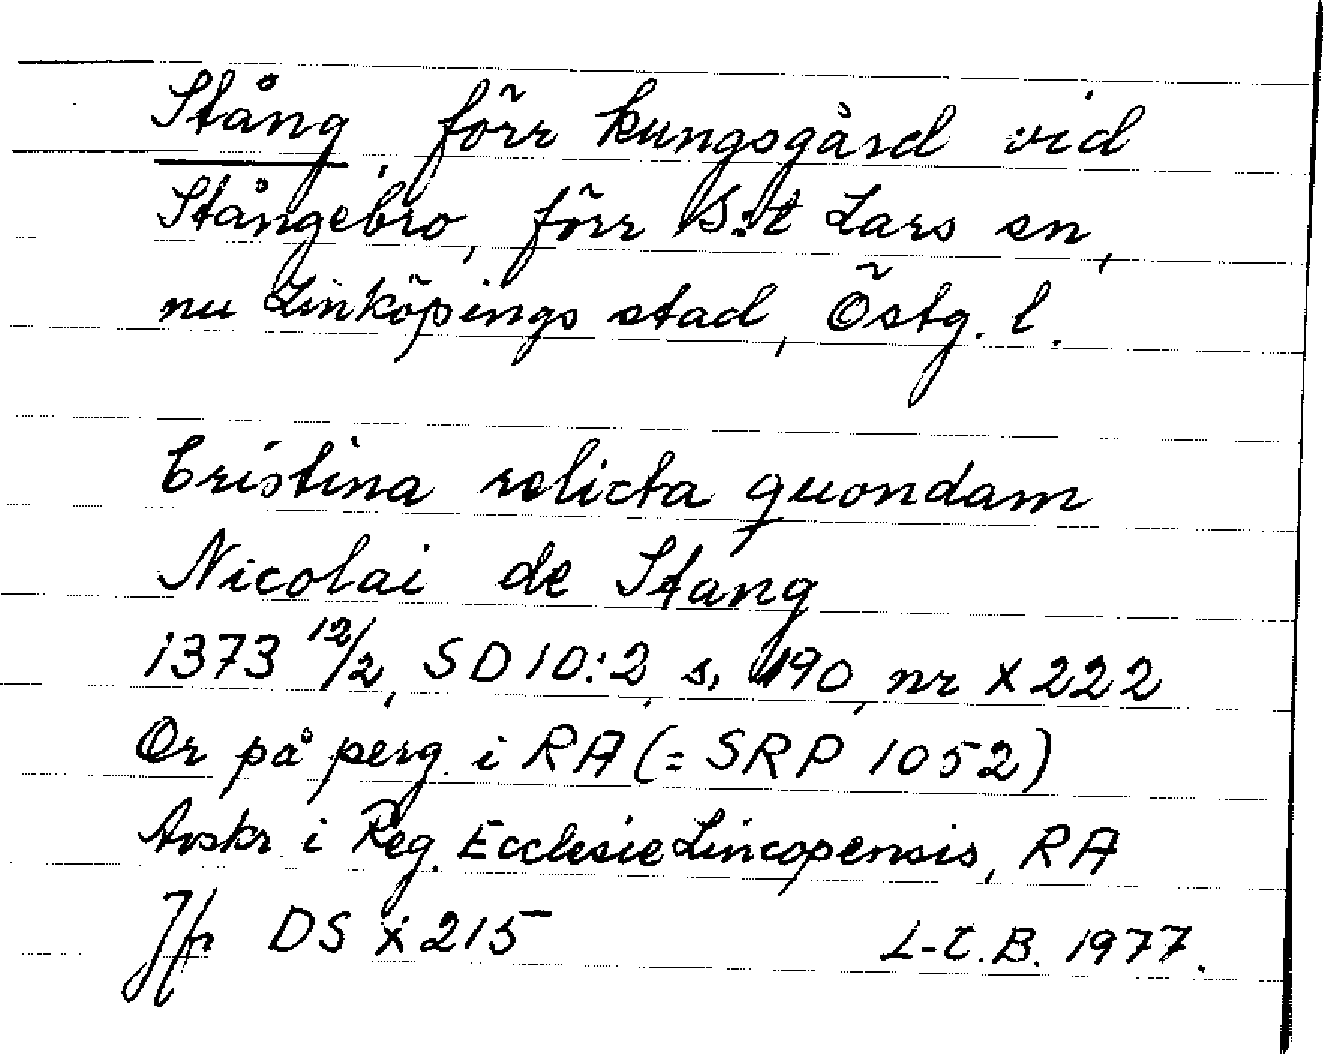 Stång, förr kungsgård vid
Stångebro, förr S:t Lars sn,
nu Linköpings stad, Östg. l.
Cristina relicta quondam
Nicolai de Stang
1373 12/2, SD 10:2, s. 190, nr X 222
Or på perg. i RA (= SRP 1052)
Avskr i Reg. Ecclesie Lincopensis, RA
Jfr DS X 215 L-C.B. 1977.